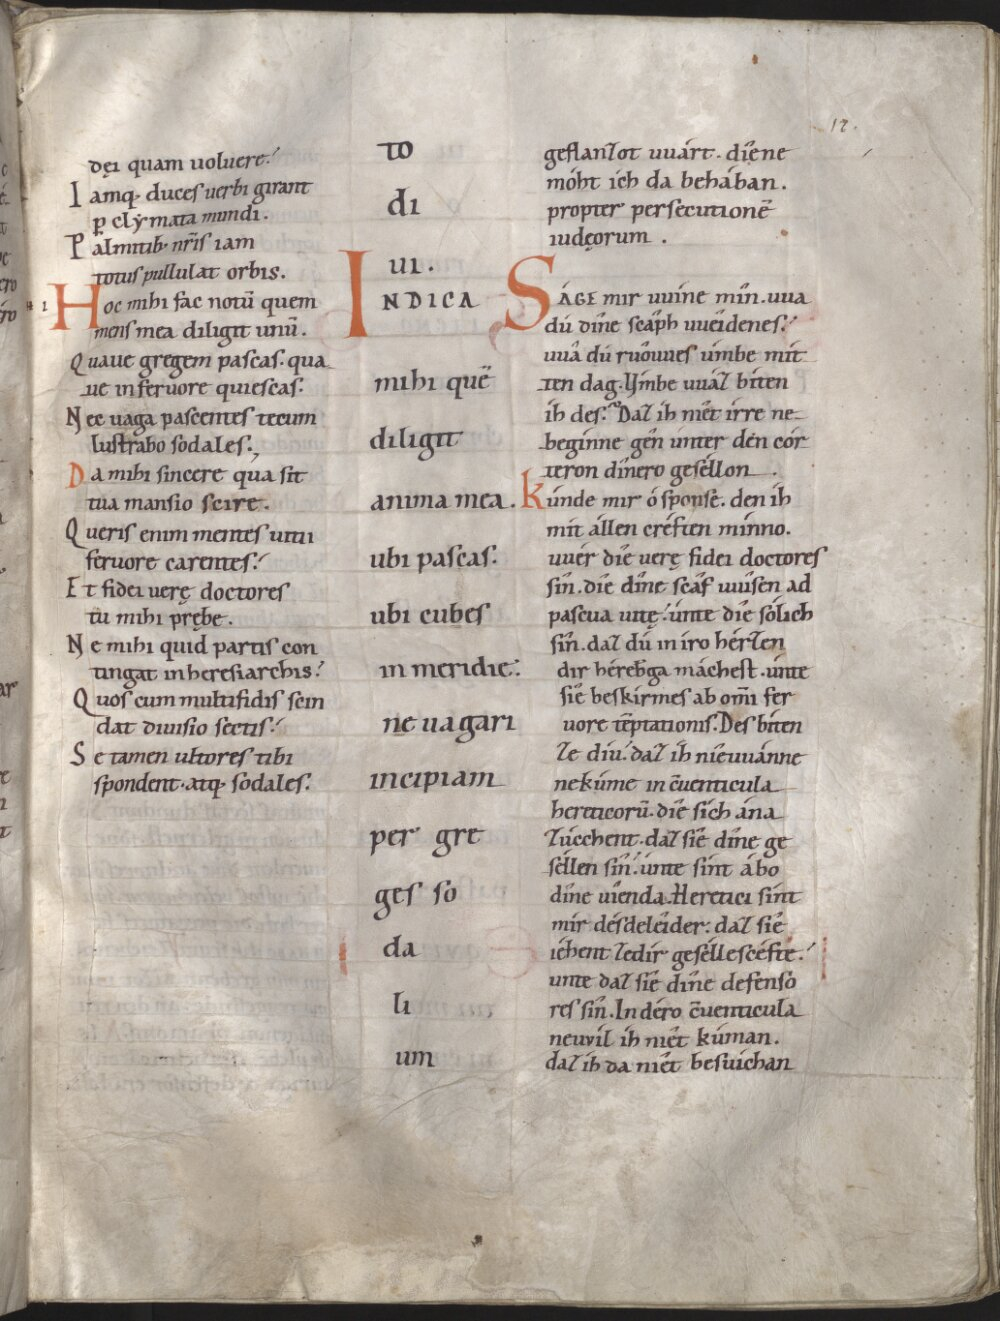 12.
dęi quam uoluere.
Iamq; duces uerbi girant
p clẏmata mundi.
Palmitib; nr̄is iam
totus pullulat orbis.
Hoc mihi fac notū quem
mens mea diligit unū.
Quaue gregem pascas. qua
ue in feruore quiescas.
Nec uaga pascentes tecum
lustrabo sodales.
Da mihi sincere qua sit
tua mansio scire.
Queris enim mentes uitii
feruore carentes.
Et fidei verę doctores
tu mihi prębe.
Ne mihi quid partis con
tingat in heresiarchis.
Quos cum multifidis scin
dat diuisio sectis.
Se tamen ultores tibi
spondent. atq; sodales.
to
di
ui.
INDICA
mihi quē
diligit
anima mea.
ubi pascas.
ubi cubes
in meridie.
ne uagari
incipiam
per gre
ges so
da
li
um
geflanzot uuárt. dîene
móht ich da behában.
propter persecutionē
iudęorum.
SÁGE mir vuíne mîn. uua
dú dîne scâph uueîdenes.
uuâ dú ruôuues úmbe mít
ten dag. Ẏmbe uuaz bíten
ih des? Daz ih nîet írre ne
beginne gên únter dén cór
teron dînero geséllon.
kúnde mir ó sponse. den ih
mit állen créften mínno.
uuér dîe verę fidei doctores
sîn. die dîne scâf vuîsen ad
pascua uitę. únte dîe sólich
sîn. daz dú in iro hérzen
dir hérebga máchest. únte
sîe beskírmes ab om̄i fer
uore tēptationis. Des bíten
ze díu. daz ih nîeuuánne
nekúme in c̄uenticula
hereticorū. dîe sích ána
zúcchent. daz sîe dîne ge
séllen sîn. únte sint ábo
dîne vîenda. Heretici sínt
mír désdeleîder: daz sîe
iéhent zedír geséllescéfte.
unte daz sîe dîne defenso
res sîn. In déro c̄uenticula
neuvîl ih nîet kúman.
daz ih da nîet besuîchan